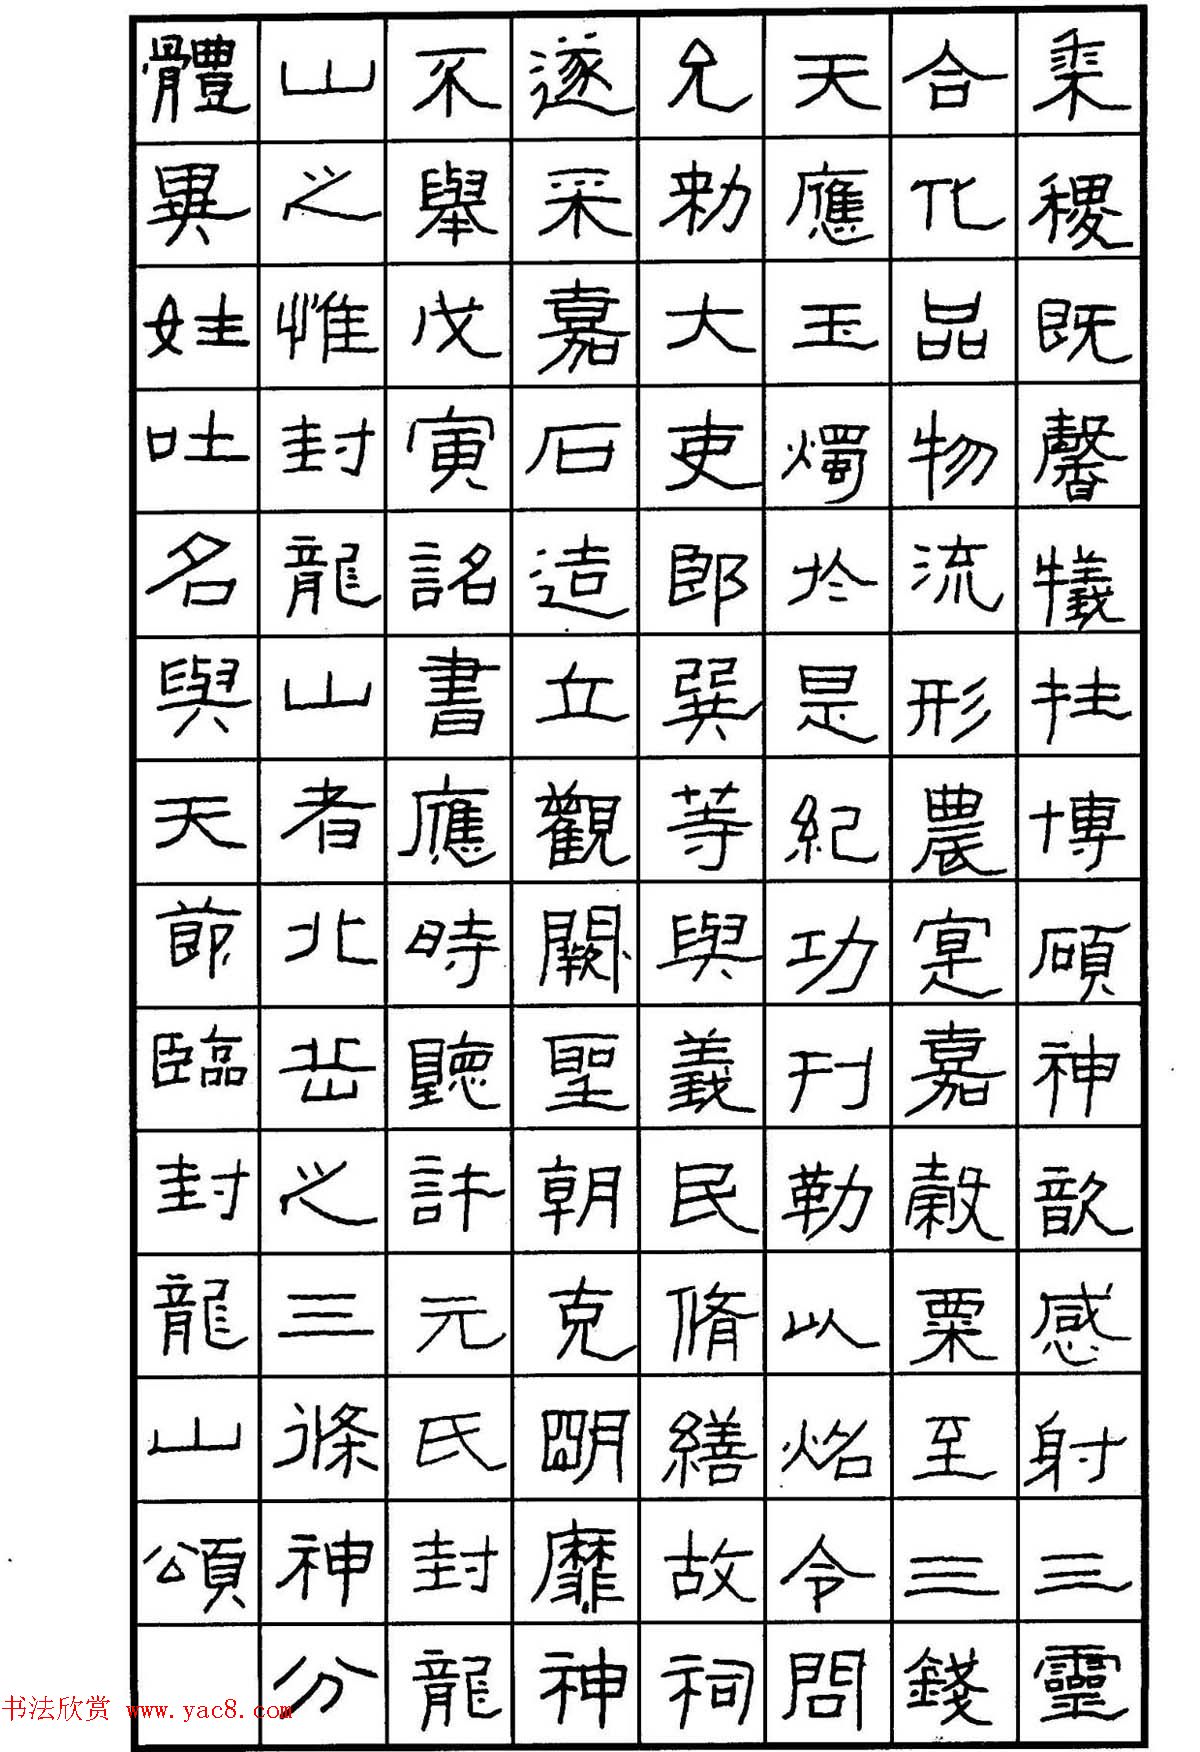 黍稷既馨犧牷博碩神歆感射三靈
合化品物流形農寔嘉穀粟至三錢
天應玉燭於是紀功刊勒以炤令問
允敕大吏郎巽等與義民脩繕故祠
遂采嘉石造立觀闕聖朝克明靡神
不舉戊寅詔書應時聽許元氏封龍
山之惟封龍山者北岳之三條神分
體異娃吐名與天節臨封龍山頌
书法欣赏 www.yac8.com